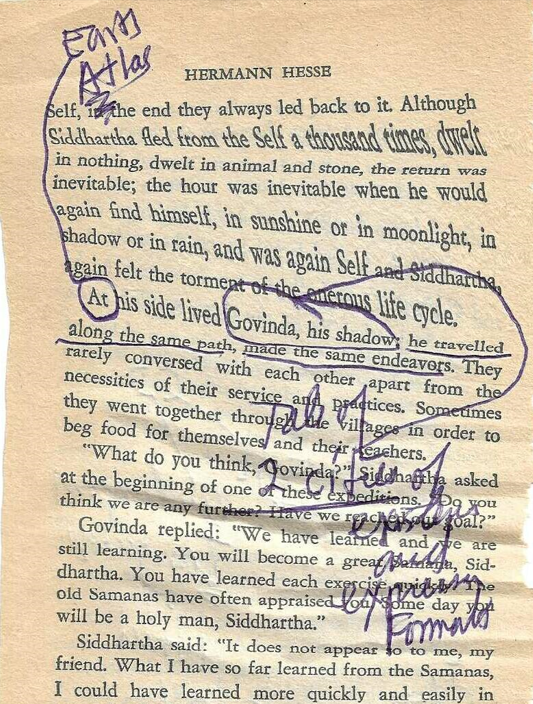 Atlas
HERMANN HESSE
Self, in the end they always led back to it. Although
Siddhartha fled from the Self a thousand times, dwelt
in nothing, dwelt in animal and stone, the return was
inevitable; the hour was inevitable when he would
again find himself, in sunshine or in moonlight, in
shadow or in rain, and was again Self and Siddhartha,
again felt the torment of the onerous life cycle.
At his side lived Govinda, his shadow; he travelled
along the same path, made the same endeavors. They
rarely conversed with each other apart from the
necessities of their service and practices. Sometimes
they went together through the villages in order to
beg food for themselves and their teachers.
"What do you think, Govinda?" Siddhartha asked
at the beginning of one of these expeditions. "Do you
think we are any further? Have we reached our goal?"
Govinda replied: "We have learned and we are
still learning. You will become a great Samana, Sid-
dhartha. You have learned each exercise quickly. The
old Samanas have often appraised you. Some day you
will be a holy man, Siddhartha."
Siddhartha said: "It does not appear so to me, my
friend. What I have so far learned from the Samanas,
I could have learned more quickly and easily in
Tale of
2 cities of
and
Formats